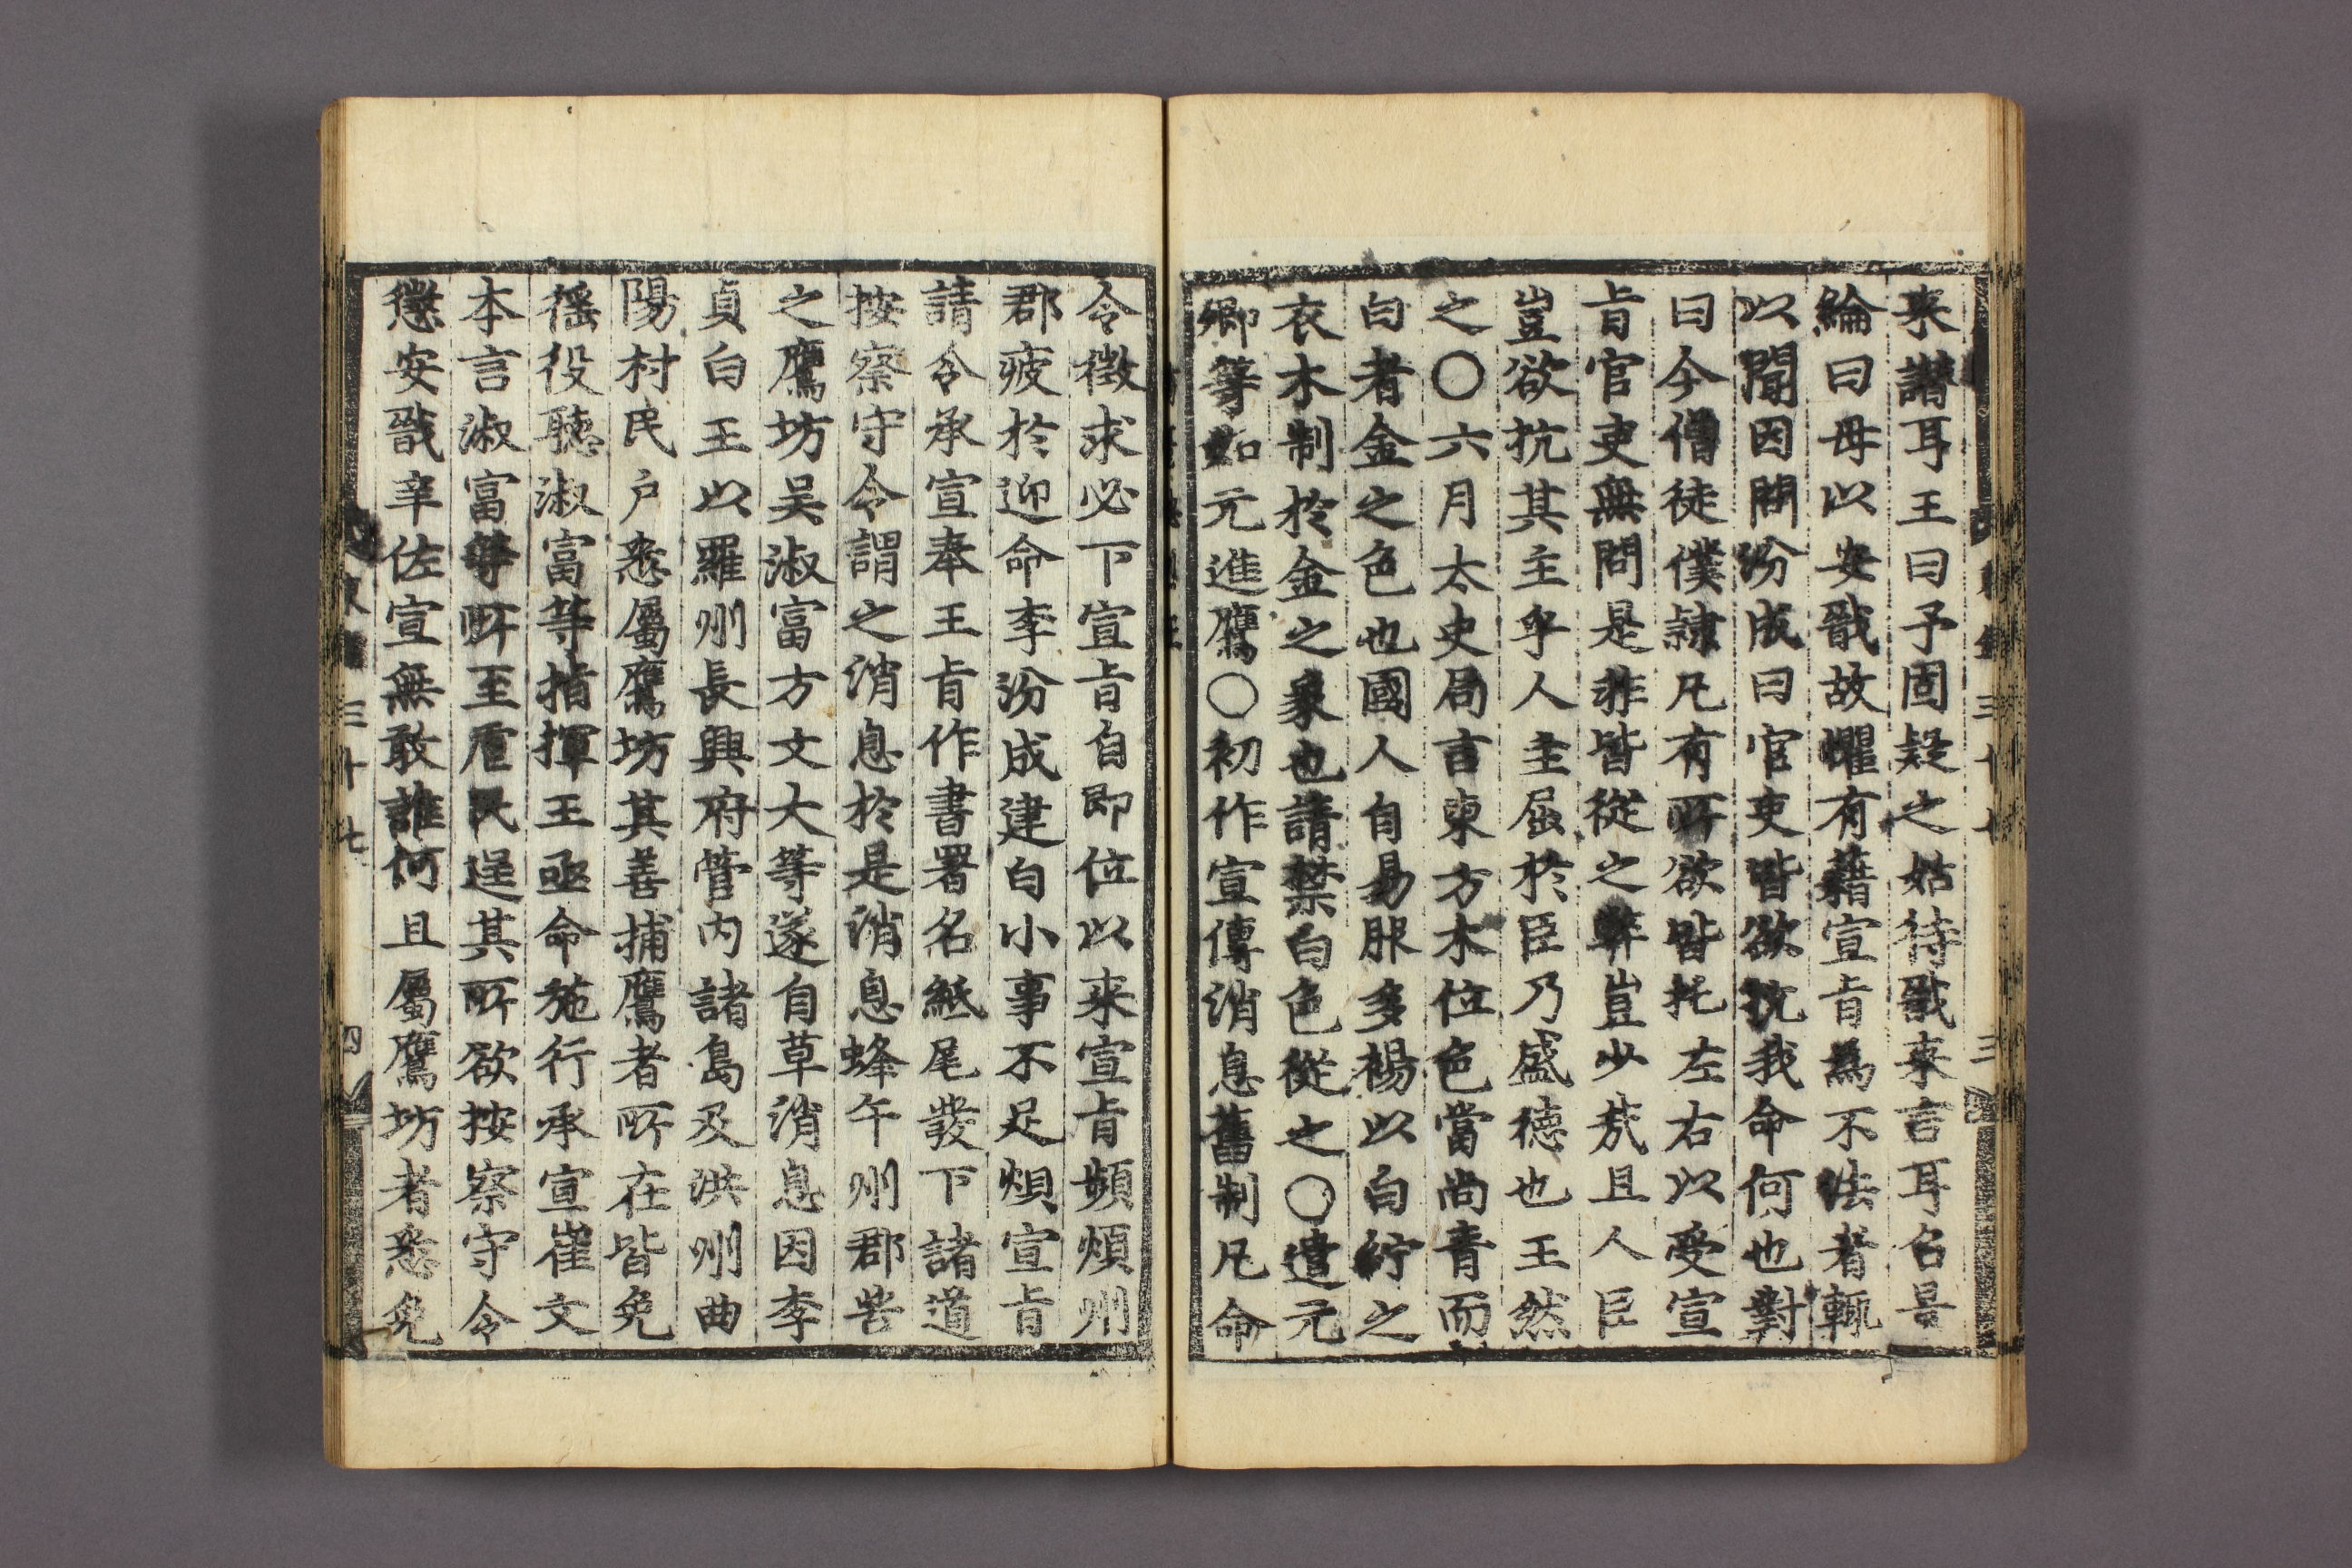 来譛耳王曰予固疑之姑待戩来言耳名昷
綸曰毋以安戩故懼有藉宣㫖爲不法者輒
以聞因問汾成曰官吏皆欲抗我命何也對
曰今僧徒僕隷凡有所欲皆托左右以受宣
㫖官吏無問是非皆從之弊豈少㢤且人臣
豈欲抗其主乎人主屈於臣乃盛徳也王然
之〇六月太史局言東方木位色當尚青而
白者金之色也國人自易服多裼以白紵之
衣木制於金之象也請禁白色從之〇遣元
卿等如元進鷹〇初作宣傳消息舊制凡命
令徴求必下宣㫖自即位以来宣㫖頻煩州
郡疲於迎命李汾成建白小事不足煩宣㫖
請令承宣奉王㫖作書署名紙尾發下諸道
按察守令謂之消息於是消息蜂午州郡苦
之鷹坊吴淑富方文大等遂自草消息因李
貞白王以羅州長興府管内諸島及洪州曲
陽村民户悉屬鷹坊其善捕鷹者所在皆免
徭役聽淑富等指揮王亟命施行承宣崔文
本言淑富等所至虐民逞其所欲按察守令
懲安戩辛佐宣無敢誰何且屬鷹坊者悉免
三十七
四